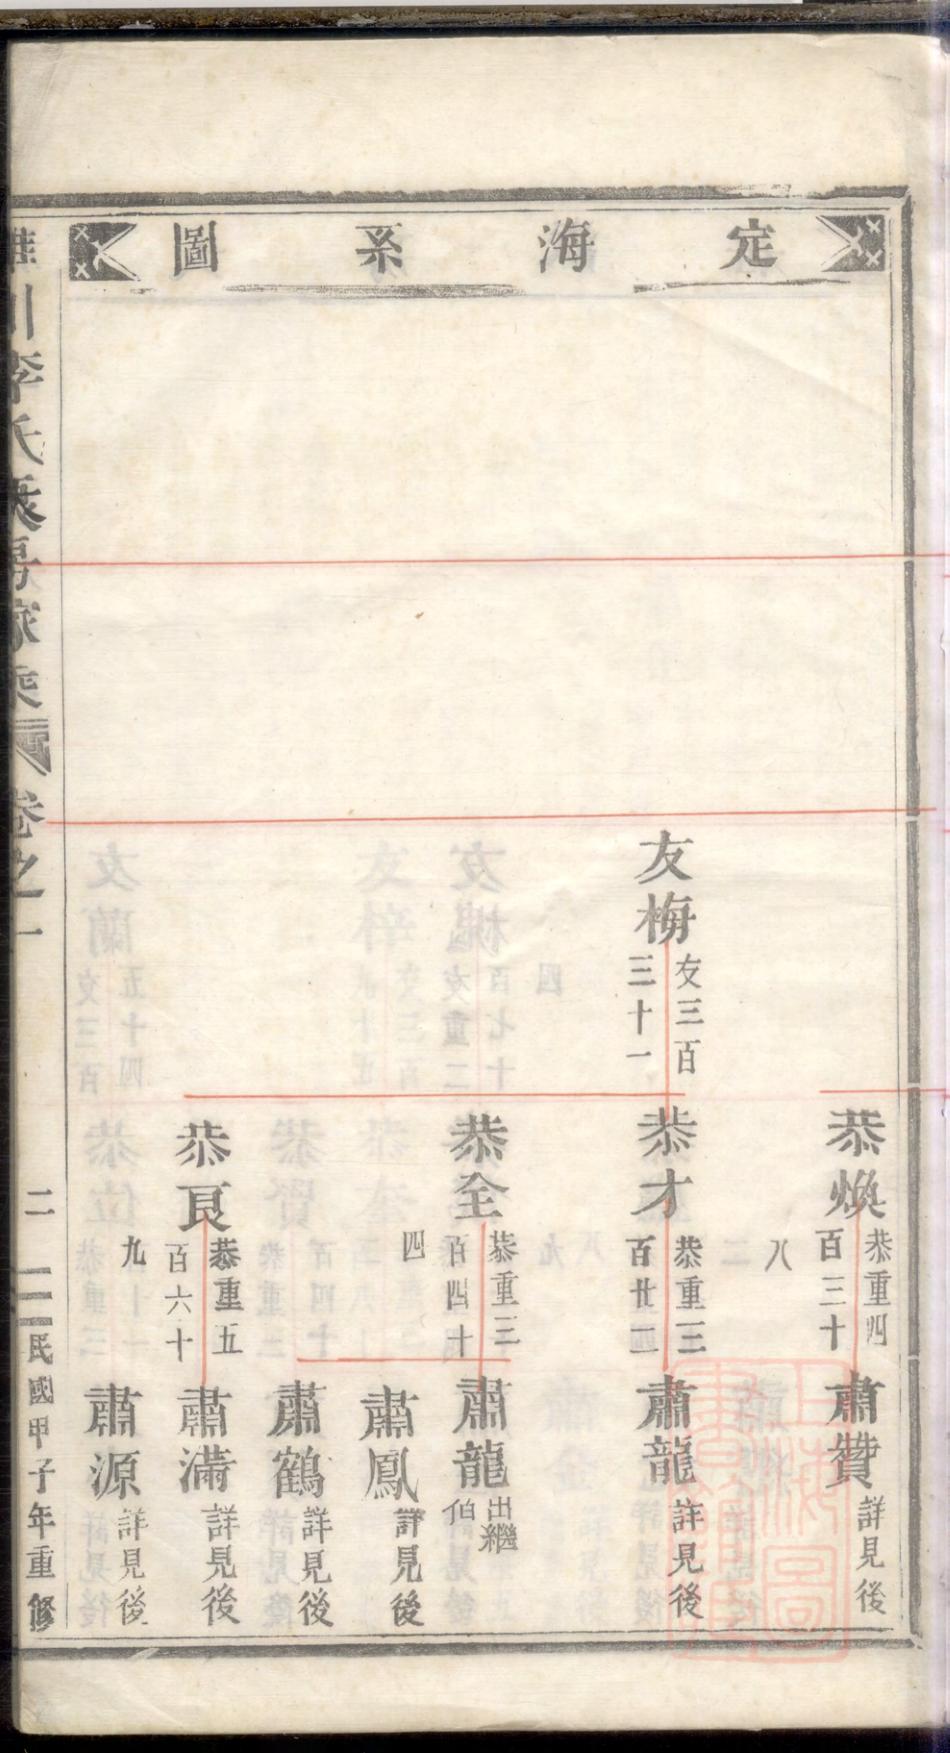 定海系圖
友梅
友三百
三十一
恭煥
恭重四
百三十
八
恭才
恭重三
百廿一
恭全
恭重三
百四十
四
恭良
恭重五
百六十
九
肅贊
詳見後
肅龍
詳見後
肅龍
出繼
伯
肅鳳
詳見後
肅鶴
詳見後
肅滿
詳見後
肅源
詳見後
川李氏長房家乘 卷之一 二 民國甲子年重修